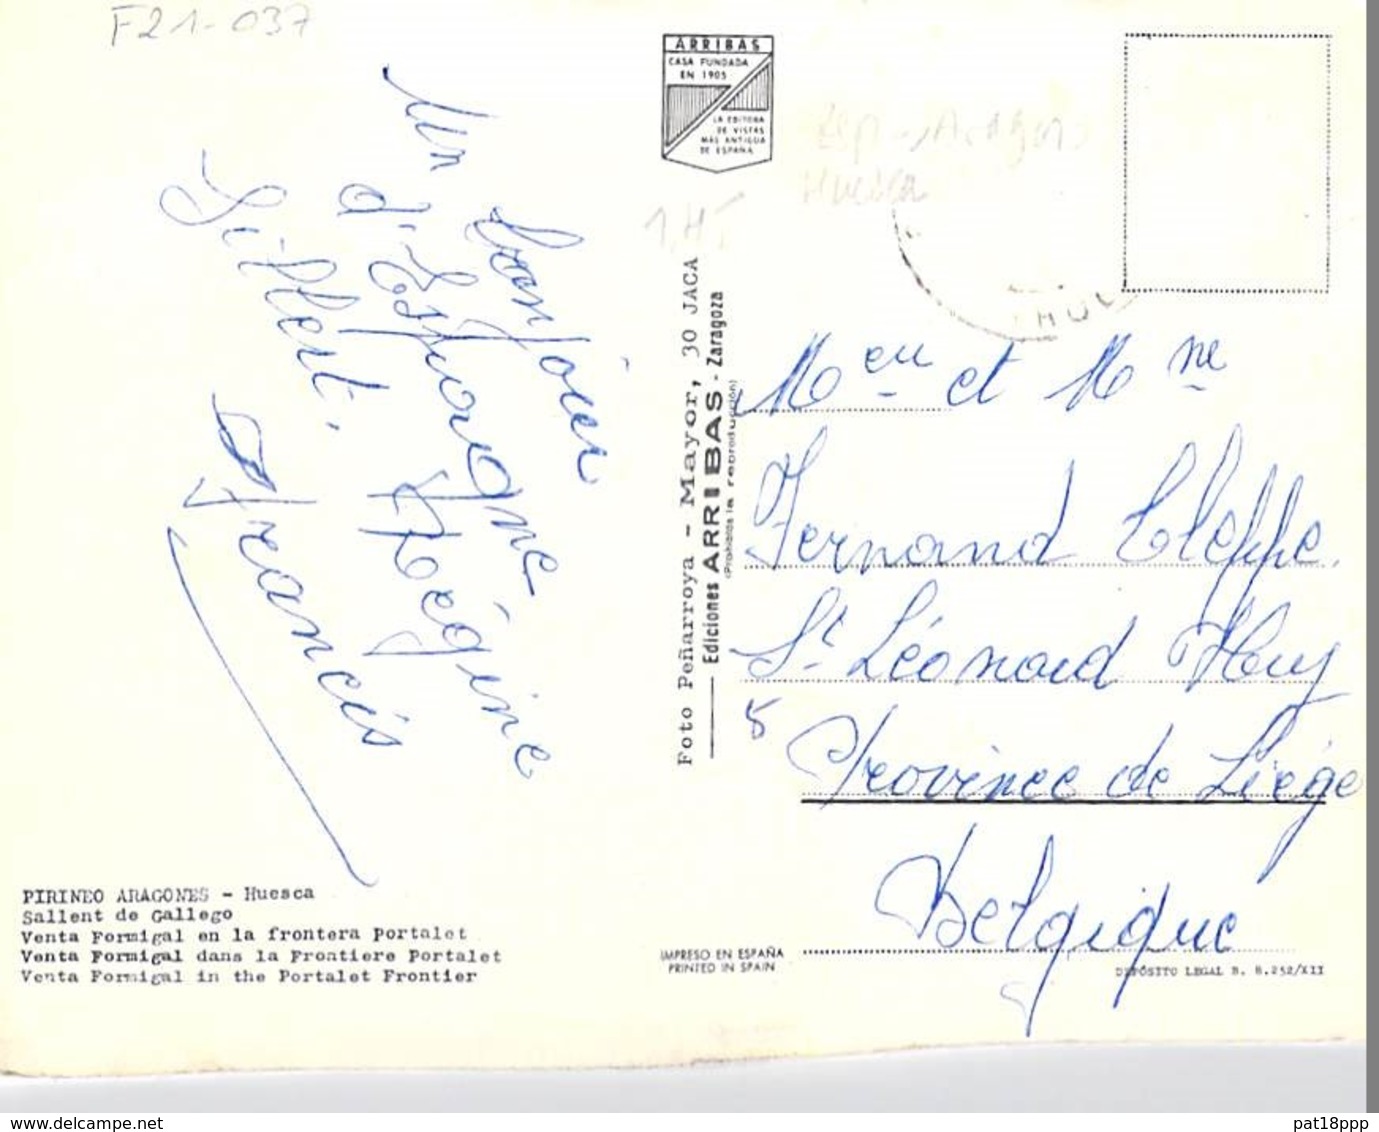 F21-037
Un bonjour
d'Espagne
Gilbert, Régine
Francis
ARRIBAS
CASA FUNDADA
EN 1905
LA EDITORA
DE VISTAS
MAS ANTIGUA
DE ESPAÑA
Huesca
Foto Peñarroya - Mayor, 30 JACA
Ediciones ARRIBAS - Zaragoza
(Prohibida la reproducción)
Meu et Mne
Fernand Cleppe.
St Léonard Huy
5
Province de Liége
Belgique
PIRINEO ARAGONES - Huesca
Sallent de Gallego
Venta Formigal en la frontera Portalet
Venta Formigal dans la Frontiere Portalet
Venta Formigal in the Portalet Frontier
IMPRESO EN ESPAÑA
PRINTED IN SPAIN
DEPÓSITO LEGAL B. 8.252/XII
www.delcampe.net
pat18ppp